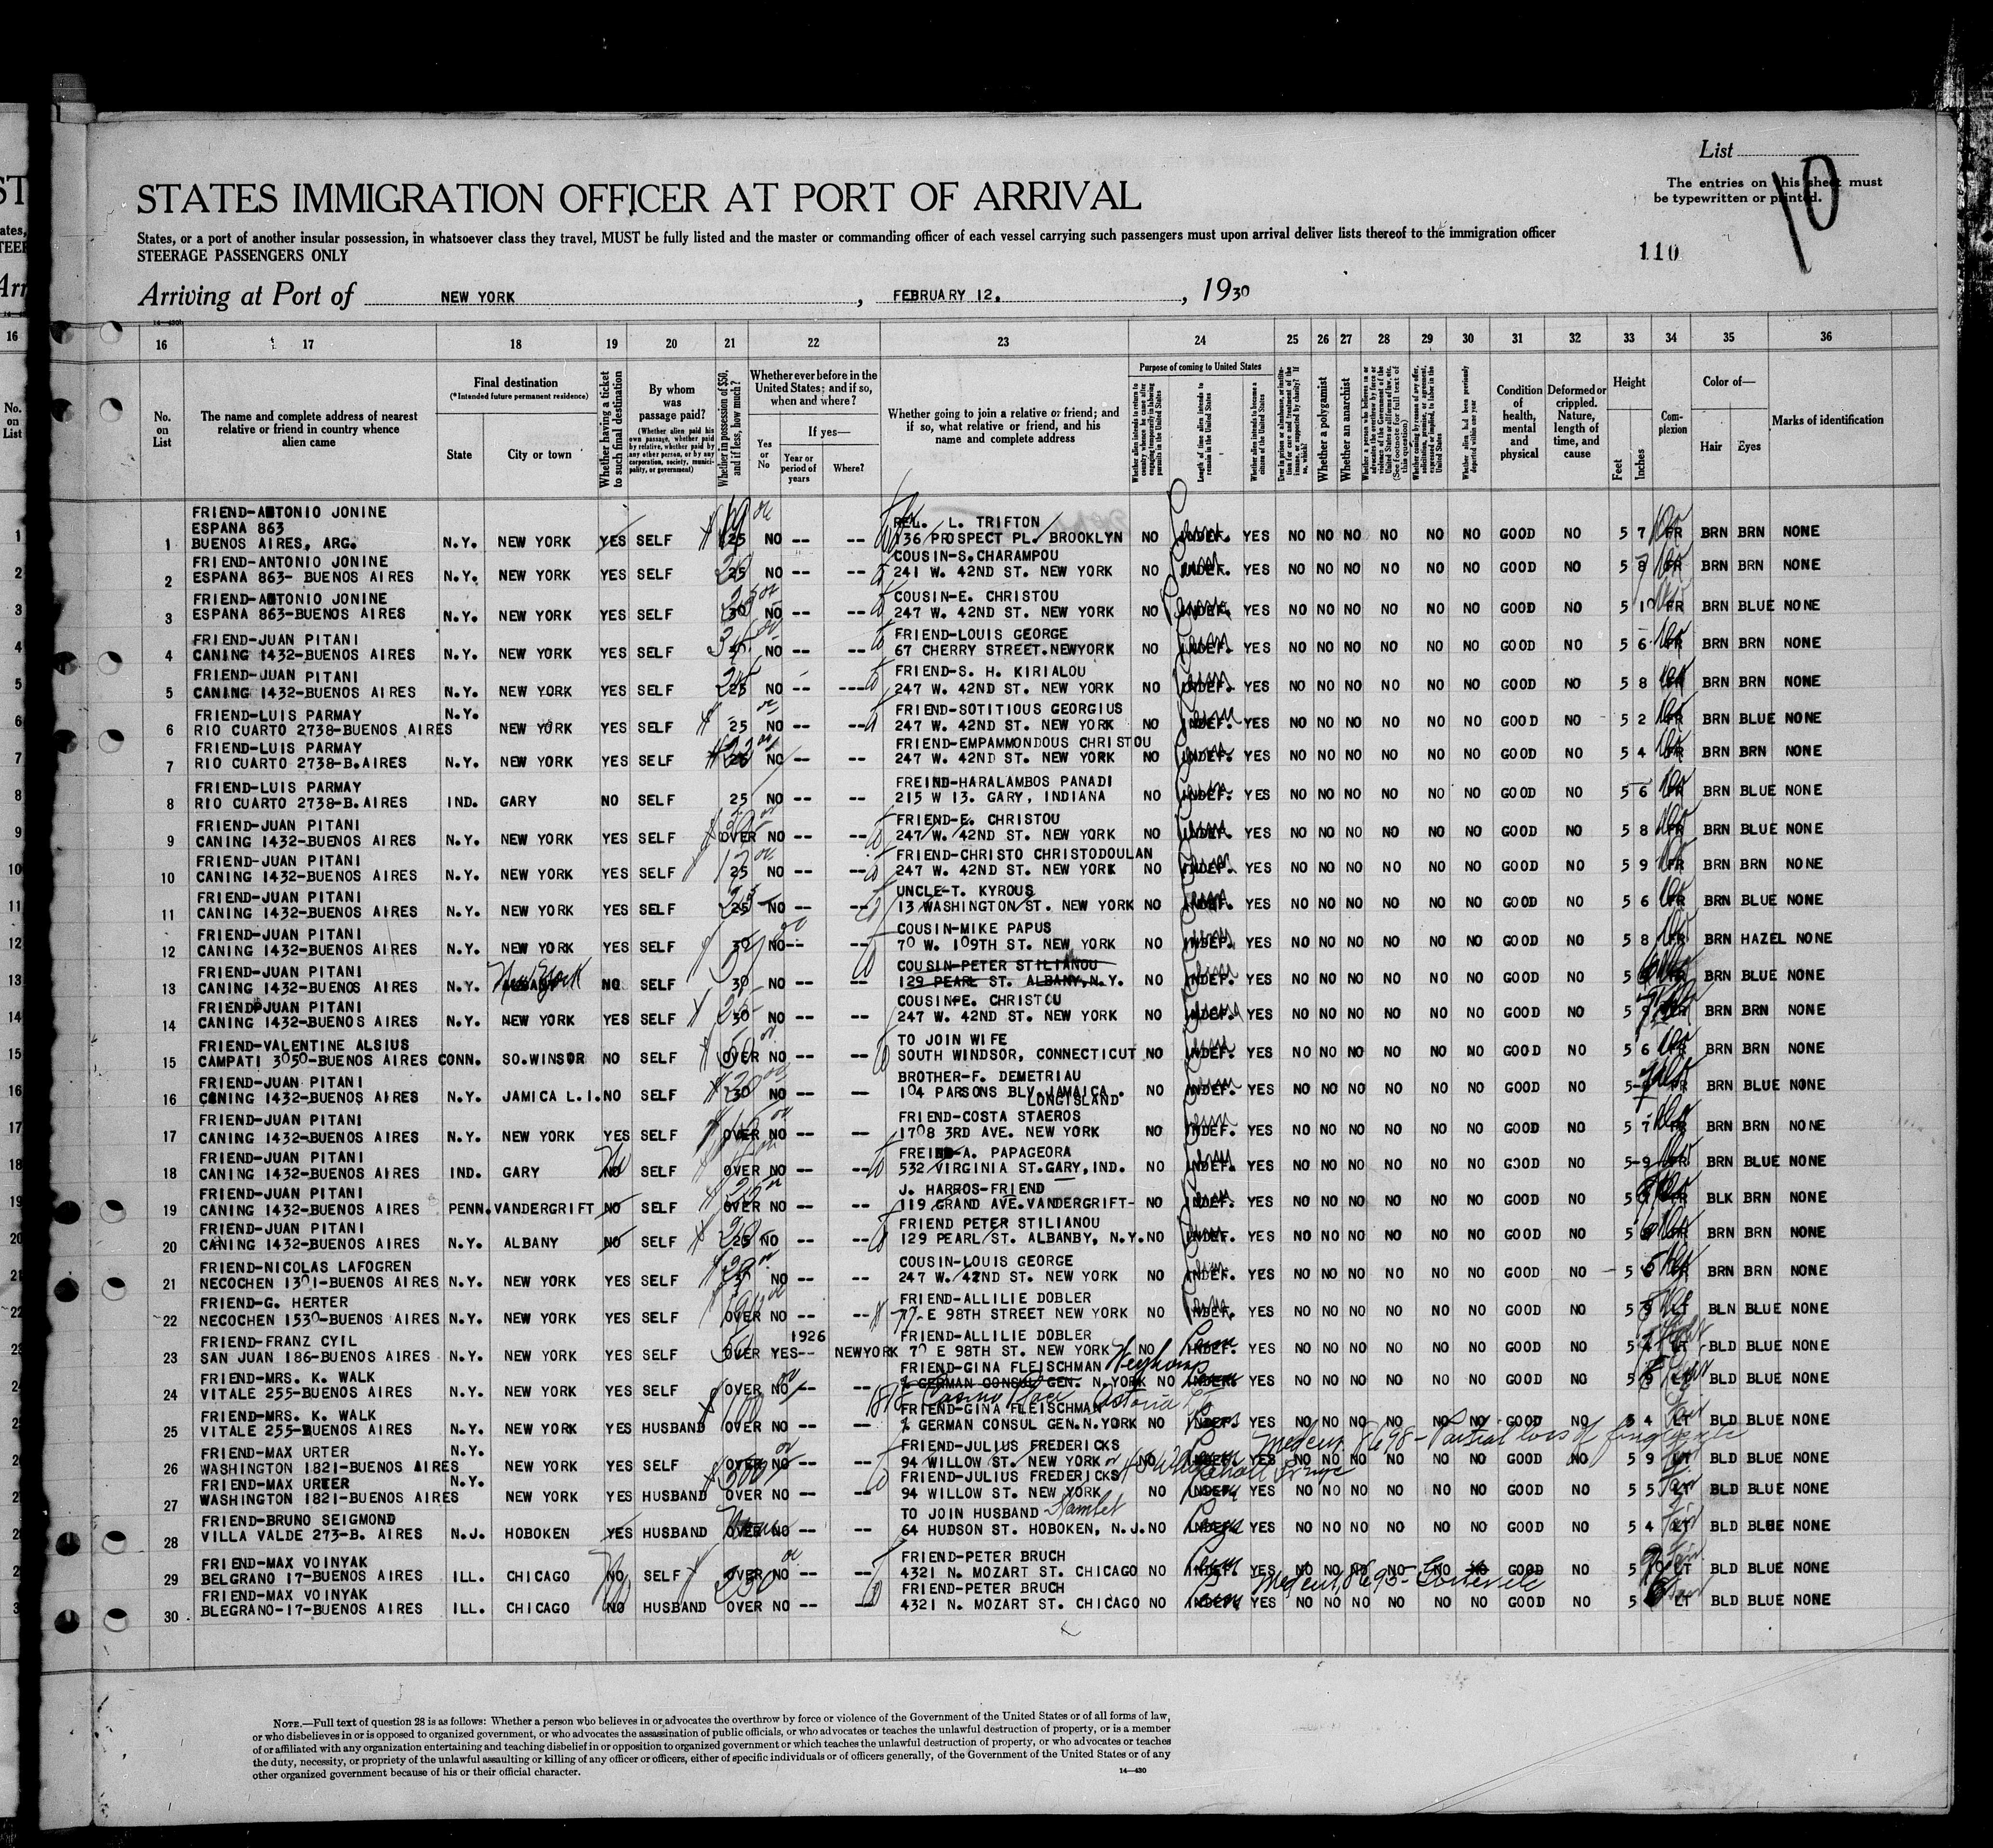 List
The entries on this sheet must
be typewritten or printed.
10
110
STATES IMMIGRATION OFFICER AT PORT OF ARRIVAL
States, or a port of another insular possession, in whatsoever class they travel, MUST be fully listed and the master or commanding officer of each vessel carrying such passengers must upon arrival deliver lists thereof to the immigration officer
STEERAGE PASSENGERS ONLY
Arriving at Port of NEW YORK, FEBRUARY 12, 1930
16 17 18 19 20 21 22 23 24 25 26 27 28 29 30 31 32 33 34 35 36
No. on List
The name and complete address of nearest relative or friend in country whence alien came
Final destination
(*Intended future permanent residence)
State
City or town
Whether having a ticket to such final destination
By whom was passage paid?
(Whether alien paid his own passage, whether paid by relative, whether paid by any other person, or by any corporation, society, municipality, or government)
Whether in possession of $50, and if less, how much?
Whether ever before in the United States; and if so, when and where?
Yes or No
If yes—
Year or period of years
Where?
Whether going to join a relative or friend; and if so, what relative or friend, and his name and complete address
Purpose of coming to United States
Length of time alien intends to remain in the United States
Whether alien intends to become a citizen of the United States
Whether a polygamist
Whether an anarchist
Condition of health, mental and physical
Deformed or crippled. Nature, length of time, and cause
Height
Feet
Inches
Complexion
Color of—
Hair
Eyes
Marks of identification
FRIEND-ANTONIO JONINE
ESPANA 863 REL. L. TRIFTON
1 BUENOS AIRES, ARG. N.Y. NEW YORK YES SELF 25 NO -- -- 136 PROSPECT PL. BROOKLYN NO INDEF. YES NO NO NO NO NO NO GOOD NO 5 7 FR BRN BRN NONE
FRIEND-ANTONIO JONINE COUSIN-S.CHARAMPOU
2 ESPANA 863- BUENOS AIRES N.Y. NEW YORK YES SELF 25 NO -- -- 241 W. 42ND ST. NEW YORK NO INDEF. YES NO NO NO NO NO NO GOOD NO 5 8 FR BRN BRN NONE
FRIEND-ANTONIO JONINE COUSIN-E. CHRISTOU
3 ESPANA 863-BUENOS AIRES N.Y. NEW YORK YES SELF 30 NO -- -- 247 W. 42ND ST. NEW YORK NO INDEF. YES NO NO NO NO NO NO GOOD NO 5 10 FR BRN BLUE NONE
FRIEND-JUAN PITANI FRIEND-LOUIS GEORGE
4 CANING 1432-BUENOS AIRES N.Y. NEW YORK YES SELF NO -- -- 67 CHERRY STREET.NEWYORK NO INDEF. YES NO NO NO NO NO NO GOOD NO 5 6 FR BRN BRN NONE
FRIEND-JUAN PITANI FRIEND-S. H. KIRIALOU
5 CANING 1432-BUENOS AIRES N.Y. NEW YORK YES SELF 25 NO -- --- 247 W. 42ND ST. NEW YORK NO INDEF. YES NO NO NO NO NO NO GOOD NO 5 8 FR BRN BRN NONE
FRIEND-LUIS PARMAY N.Y. FRIEND-SOTITIOUS GEORGIUS
6 RIO CUARTO 2738-BUENOS AIRES NEW YORK YES SELF 25 NO -- -- 247 W. 42ND ST. NEW YORK NO INDEF. YES NO NO NO NO NO NO GOOD NO 5 2 FR BRN BLUE NONE
FRIEND-LUIS PARMAY FRIEND-EMPAMMONDOUS CHRISTOU
7 RIO CUARTO 2738-B.AIRES N.Y. NEW YORK YES SELF NO -- -- 247 W. 42ND ST. NEW YORK NO INDEF. YES NO NO NO NO NO NO GOOD NO 5 4 FR BRN BRN NONE
FRIEND-LUIS PARMAY FREIND-HARALAMBOS PANADI
8 RIO CUARTO 2738-B.AIRES IND. GARY NO SELF 25 NO -- -- 215 W 13. GARY, INDIANA NO INDEF. YES NO NO NO NO NO NO GOOD NO 5 6 FR BRN BLUE NONE
FRIEND-JUAN PITANI FRIEND-E. CHRISTOU
9 CANING 1432-BUENOS AIRES N.Y. NEW YORK YES SELF OVER NO -- -- 247 W. 42ND ST. NEW YORK NO INDEF. YES NO NO NO NO NO NO GOOD NO 5 8 FR BRN BLUE NONE
FRIEND-JUAN PITANI FRIEND-CHRISTO CHRISTODOULAN
10 CANING 1432-BUENOS AIRES N.Y. NEW YORK YES SELF 25 NO -- -- 247 W. 42ND ST. NEW YORK NO INDEF. YES NO NO NO NO NO NO GOOD NO 5 9 FR BRN BRN NONE
FRIEND-JUAN PITANI UNCLE-T. KYROUS
11 CANING 1432-BUENOS AIRES N.Y. NEW YORK YES SELF 25 NO -- -- 13 WASHINGTON ST. NEW YORK NO INDEF. YES NO NO NO NO NO NO GOOD NO 5 6 FR BRN BLUE NONE
FRIEND-JUAN PITANI COUSIN-MIKE PAPUS
12 CANING 1432-BUENOS AIRES N.Y. NEW YORK YES SELF 30 NO-- -- 70 W. 109TH ST. NEW YORK NO INDEF. YES NO NO NO NO NO NO GOOD NO 5 8 FR BRN HAZEL NONE
FRIEND-JUAN PITANI COUSIN-PETER STILIANOU
13 CANING 1432-BUENOS AIRES N.Y. New York NO SELF 30 NO -- -- 129 PEARL ST. ALBANY, N.Y. NO INDEF. YES NO NO NO NO NO NO GOOD NO 5 BRN BLUE NONE
FRIEND-JUAN PITANI COUSIN-E. CHRISTOU
14 CANING 1432-BUENOS AIRES N.Y. NEW YORK YES SELF 30 NO -- -- 247 W. 42ND ST. NEW YORK NO INDEF. YES NO NO NO NO NO NO GOOD NO 5 BRN BRN NONE
FRIEND-VALENTINE ALSIUS TO JOIN WIFE
15 CAMPATI 3050-BUENOS AIRES CONN. SO.WINSOR NO SELF OVER NO -- -- SOUTH WINDSOR, CONNECTICUT NO INDEF. YES NO NO NO NO NO NO GOOD NO 5 6 FR BRN BRN NONE
FRIEND-JUAN PITANI BROTHER-F. DEMETRIAU
16 CANING 1432-BUENOS AIRES N.Y. JAMICA L.I. NO SELF 30 NO -- -- 104 PARSONS BLV.JAMAICA. NO INDEF. YES NO NO NO NO NO NO GOOD NO 5 FR BRN BLUE NONE
LONGISLAND
FRIEND-JUAN PITANI FRIEND-COSTA STAEROS
17 CANING 1432-BUENOS AIRES N.Y. NEW YORK YES SELF OVER NO -- -- 1708 3RD AVE. NEW YORK NO INDEF. YES NO NO NO NO NO NO GOOD NO 5 7 FR BRN BRN NONE
FRIEND-JUAN PITANI FREIND-A. PAPAGEORA
18 CANING 1432-BUENOS AIRES IND. GARY NO SELF OVER NO -- -- 532 VIRGINIA ST.GARY,IND. NO INDEF. YES NO NO NO NO NO NO GOOD NO 5-9 FR BRN BLUE NONE
FRIEND-JUAN PITANI J. HARROS-FRIEND
19 CANING 1432-BUENOS AIRES PENN. VANDERGRIFT NO SELF OVER NO -- -- 119 GRAND AVE.VANDERGRIFT- NO INDEF. YES NO NO NO NO NO NO GOOD NO 5 FR BLK BRN NONE
FRIEND-JUAN PITANI FRIEND PETER STILIANOU
20 CANING 1432-BUENOS AIRES N.Y. ALBANY NO SELF 25 NO -- -- 129 PEARL ST. ALBANBY, N.Y. NO INDEF. YES NO NO NO NO NO NO GOOD NO 5 FR BRN BRN NONE
FRIEND-NICOLAS LAFOGREN COUSIN-LOUIS GEORGE
21 NECOCHEN 1301-BUENOS AIRES N.Y. NEW YORK YES SELF NO -- -- 247 W. 42ND ST. NEW YORK NO INDEF. YES NO NO NO NO NO NO GOOD NO 5 BRN BRN NONE
FRIEND-G. HERTER FRIEND-ALLILIE DOBLER
22 NECOCHEN 1530-BUENOS AIRES N.Y. NEW YORK YES SELF OVER NO -- -- 77-E 98TH STREET NEW YORK NO INDEF. YES NO NO NO NO NO NO GOOD NO 5 9 LT BLN BLUE NONE
FRIEND-FRANZ CYIL 1926 FRIEND-ALLILIE DOBLER
23 SAN JUAN 186-BUENOS AIRES N.Y. NEW YORK YES SELF OVER YES-- NEWYORK 70 E 98TH ST. NEW YORK NO INDEF. YES NO NO NO NO NO NO GOOD NO 5 4 LT BLD BLUE NONE
FRIEND-MRS. K. WALK FRIEND-GINA FLEISCHMAN
24 VITALE 255-BUENOS AIRES N.Y. NEW YORK YES SELF OVER NO -- -- % GERMAN CONSUL GEN. N.YORK NO INDEF. YES NO NO NO NO NO NO GOOD NO 5 BLD BLUE NONE
Astoria
FRIEND-MRS. K. WALK FRIEND-GINA FLEISCHMAN
25 VITALE 255-BUENOS AIRES N.Y. NEW YORK YES HUSBAND OVER NO -- -- % GERMAN CONSUL GEN.N.YORK NO INDEF. YES NO NO NO NO NO NO GOOD NO 5 4 LT BLD BLUE NONE
Med cert 8698 - Partial loss of
FRIEND-MAX URTER N.Y. FRIEND-JULIUS FREDERICKS
26 WASHINGTON 1821-BUENOS AIRES NEW YORK YES SELF OVER NO -- -- 94 WILLOW ST. NEW YORK NO INDEF. YES NO NO NO NO NO NO GOOD NO 5 9 LT BLD BLUE NONE
FRIEND-MAX URTER N.Y. FRIEND-JULIUS FREDERICKS
27 WASHINGTON 1821-BUENOS AIRES NEW YORK YES HUSBAND OVER NO -- -- 94 WILLOW ST. NEW YORK NO INDEF. YES NO NO NO NO NO NO GOOD NO 5 5 LT BLD BLUE NONE
FRIEND-BRUNO SEIGMOND TO JOIN HUSBAND
28 VILLA VALDE 273-B. AIRES N.J. HOBOKEN YES HUSBAND OVER NO -- -- 64 HUDSON ST. HOBOKEN, N.J. NO INDEF. YES NO NO NO NO NO NO GOOD NO 5 4 LT BLD BLUE NONE
FRIEND-MAX VOINYAK FRIEND-PETER BRUCH
29 BELGRANO 17-BUENOS AIRES ILL. CHICAGO NO SELF OVER NO -- -- 4321 N. MOZART ST. CHICAGO NO INDEF. YES NO NO NO NO NO NO GOOD NO 5 LT BLD BLUE NONE
Med cert 8695 -
FRIEND-MAX VOINYAK FRIEND-PETER BRUCH
30 BLEGRANO-17-BUENOS AIRES ILL. CHICAGO NO HUSBAND OVER NO -- -- 4321 N. MOZART ST. CHICAGO NO INDEF. YES NO NO NO NO NO NO GOOD NO 5 LT BLD BLUE NONE
NOTE.—Full text of question 28 is as follows: Whether a person who believes in or advocates the overthrow by force or violence of the Government of the United States or of all forms of law,
or who disbelieves in or is opposed to organized government, or who advocates the assassination of public officials, or who advocates or teaches the unlawful destruction of property, or is a member
of or affiliated with any organization entertaining and teaching disbelief in or opposition to organized government or which teaches the unlawful destruction of property, or who advocates or teaches
the duty, necessity, or propriety of the unlawful assaulting or killing of any officer or officers, either of specific individuals or of officers generally, of the Government of the United States or of any
other organized government because of his or their official character.
14—430